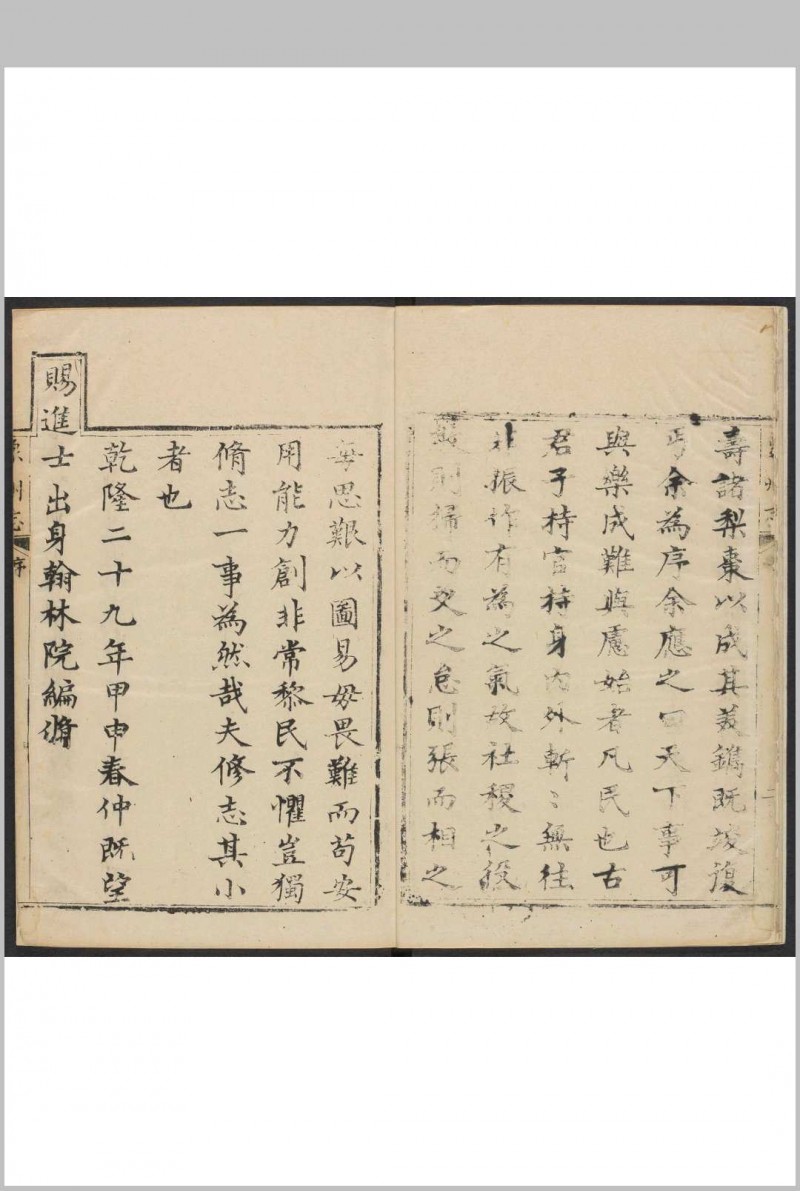 壽諸梨棗以成其美鐫既竣復
丐余為序余應之曰天下事可
與樂成難與慮始者凡民也古
君子持官持身內外斬〻無往
非振作有為之氣故社稷之役
則掃而更之怠則張而相之
毎思艱以圖易毋畏難而苟安
用能力創非常黎民不懼豈獨
脩志一事為然哉夫修志其小
者也
乾隆二十九年甲申春仲既望
賜進士出身翰林院編脩
州志
序
州志
二